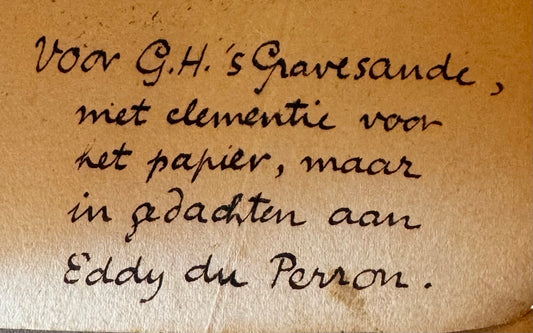 Voor G.H. 's Gravesande,
met clementie voor
het papier, maar
in gedachten aan
Eddy du Perron.